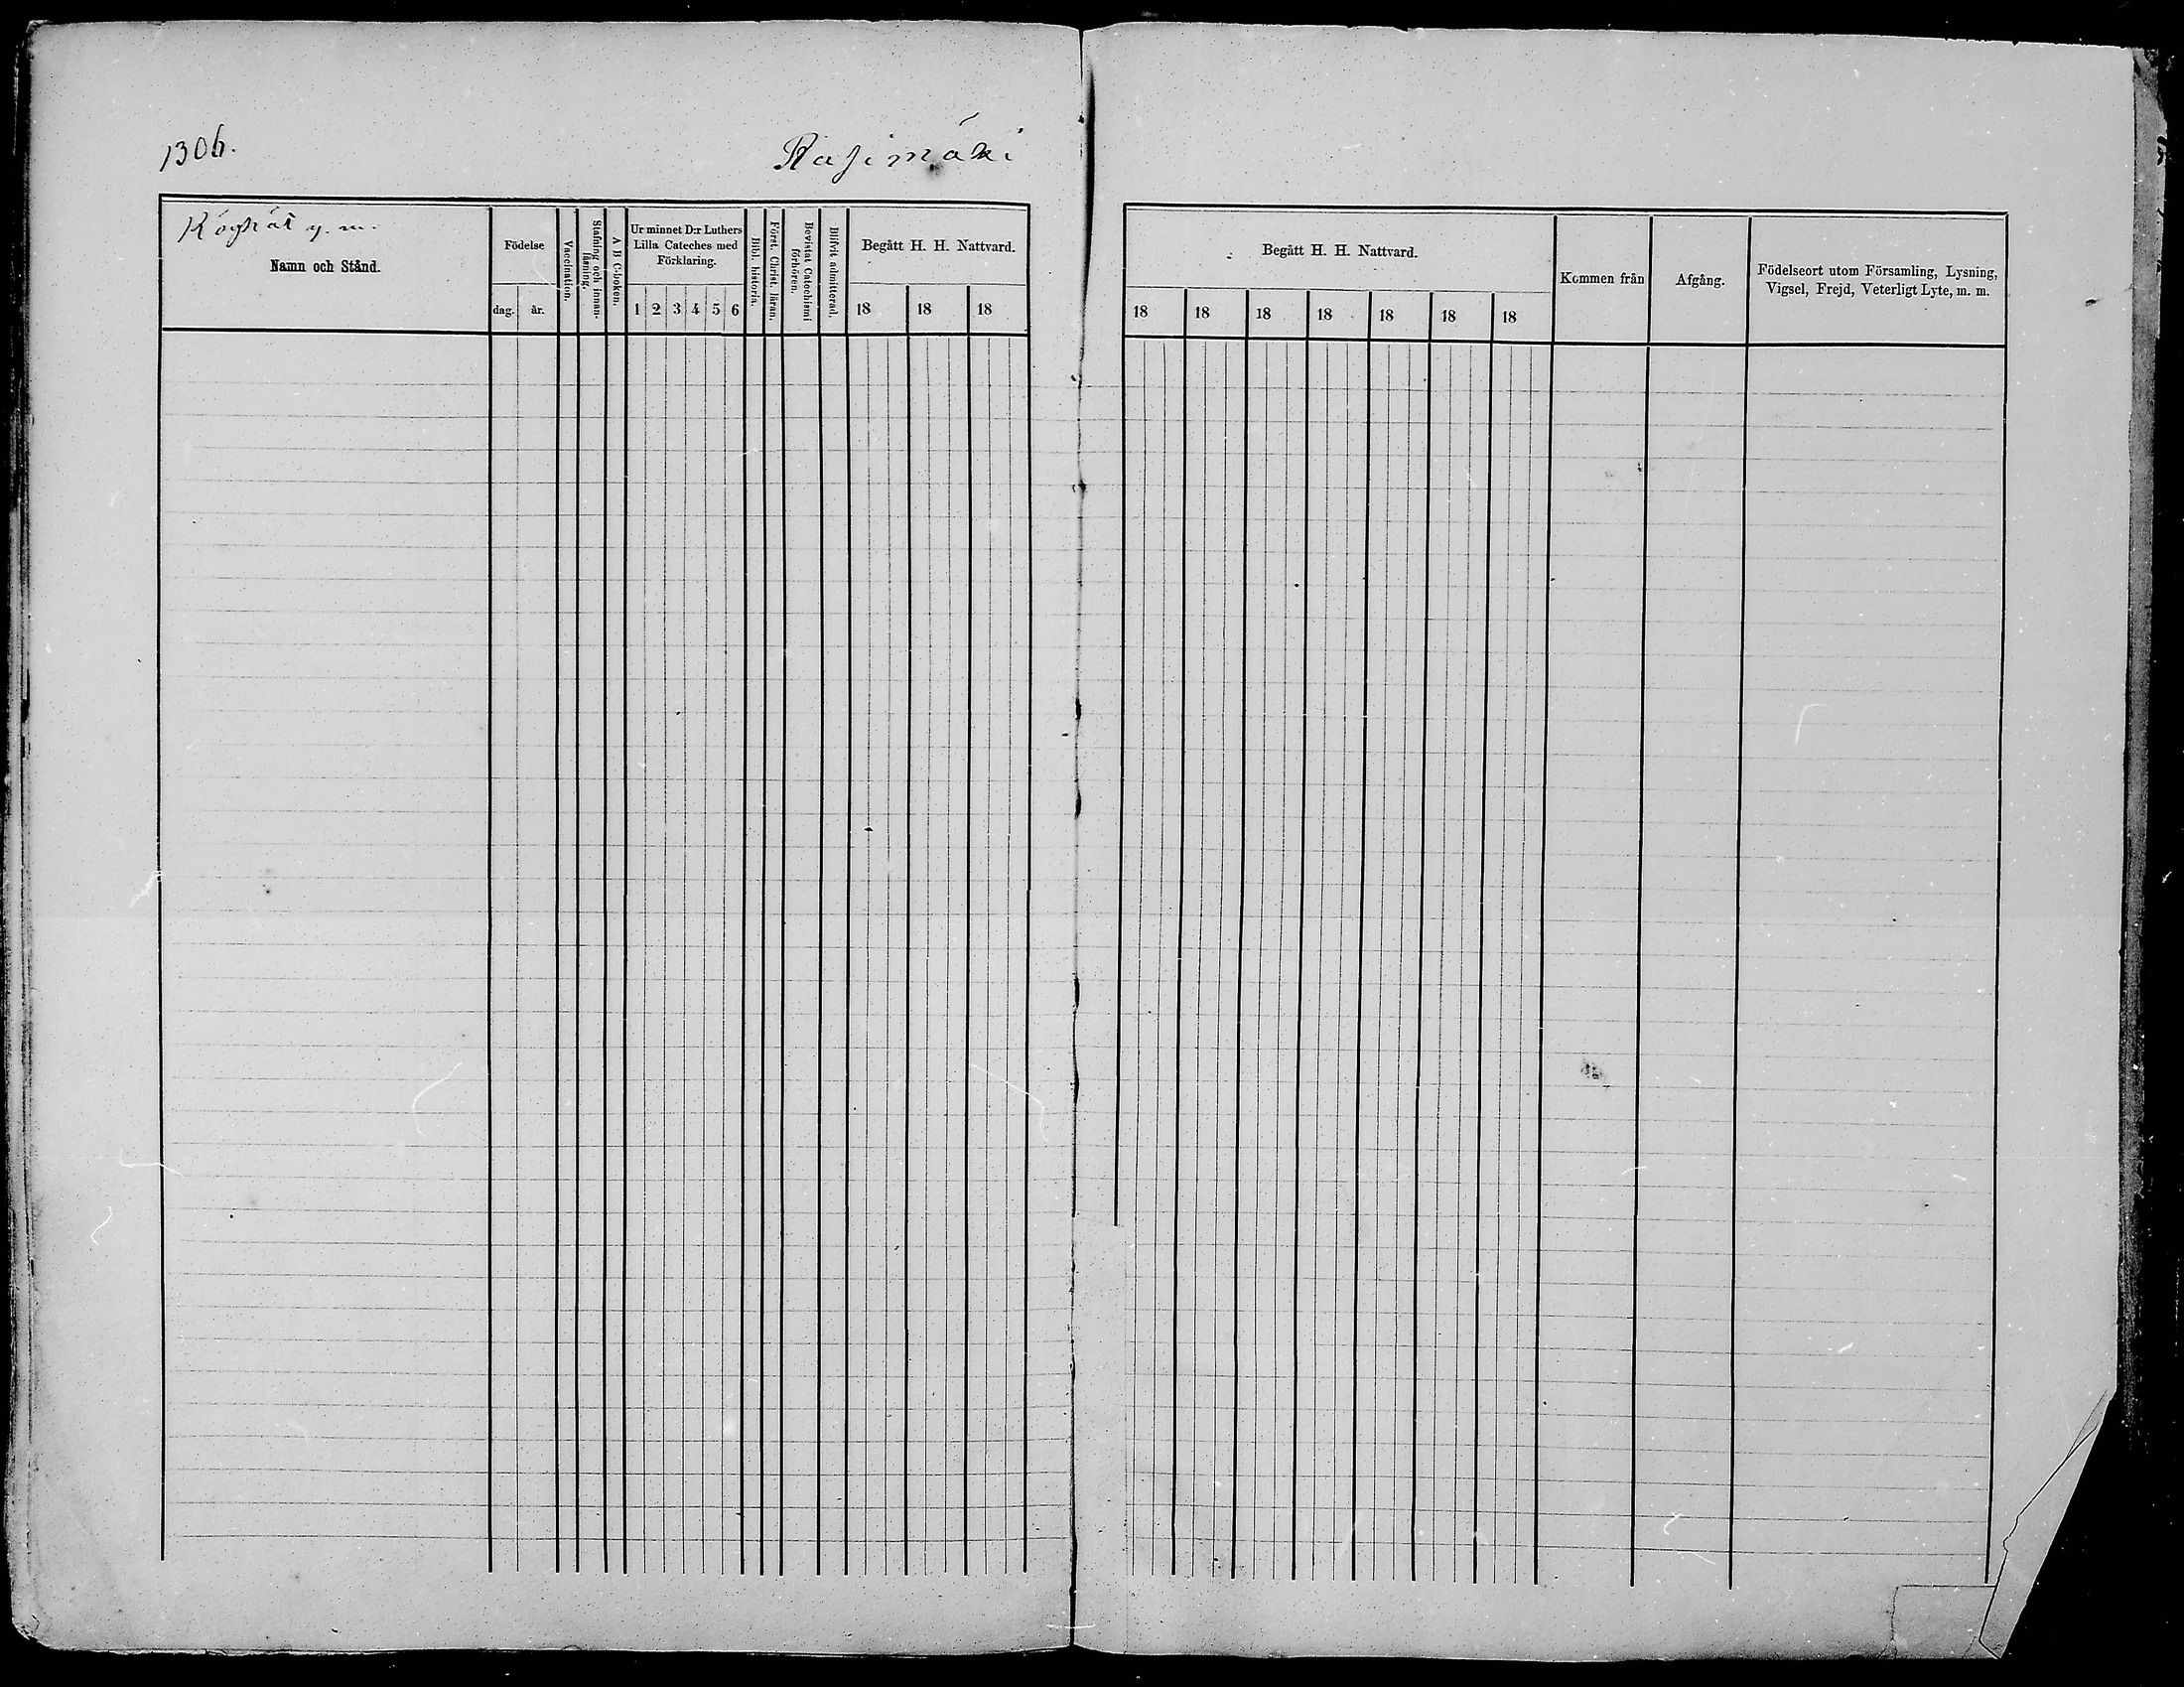 1306.
Rasimäki
y. m.
Namn och Stånd.
Födelse
dag.
år.
Vaccination.
Stafning och innan-
läsning.
A B C-boken.
Ur minnet D:r Luthers
Lilla Cateches med
Förklaring.
1 2 3 4 5 6
Bibl. historia.
Först. Christ. läran.
Bevistat Catechismi
förhören.
Blifvit admitterad.
Begått H. H. Nattvard.
18 18 18
Begått H. H. Nattvard.
18 18 18 18 18 18 18
Kommen från
Afgång.
Födelseort utom Församling, Lysning,
Vigsel, Frejd, Veterligt Lyte, m. m.